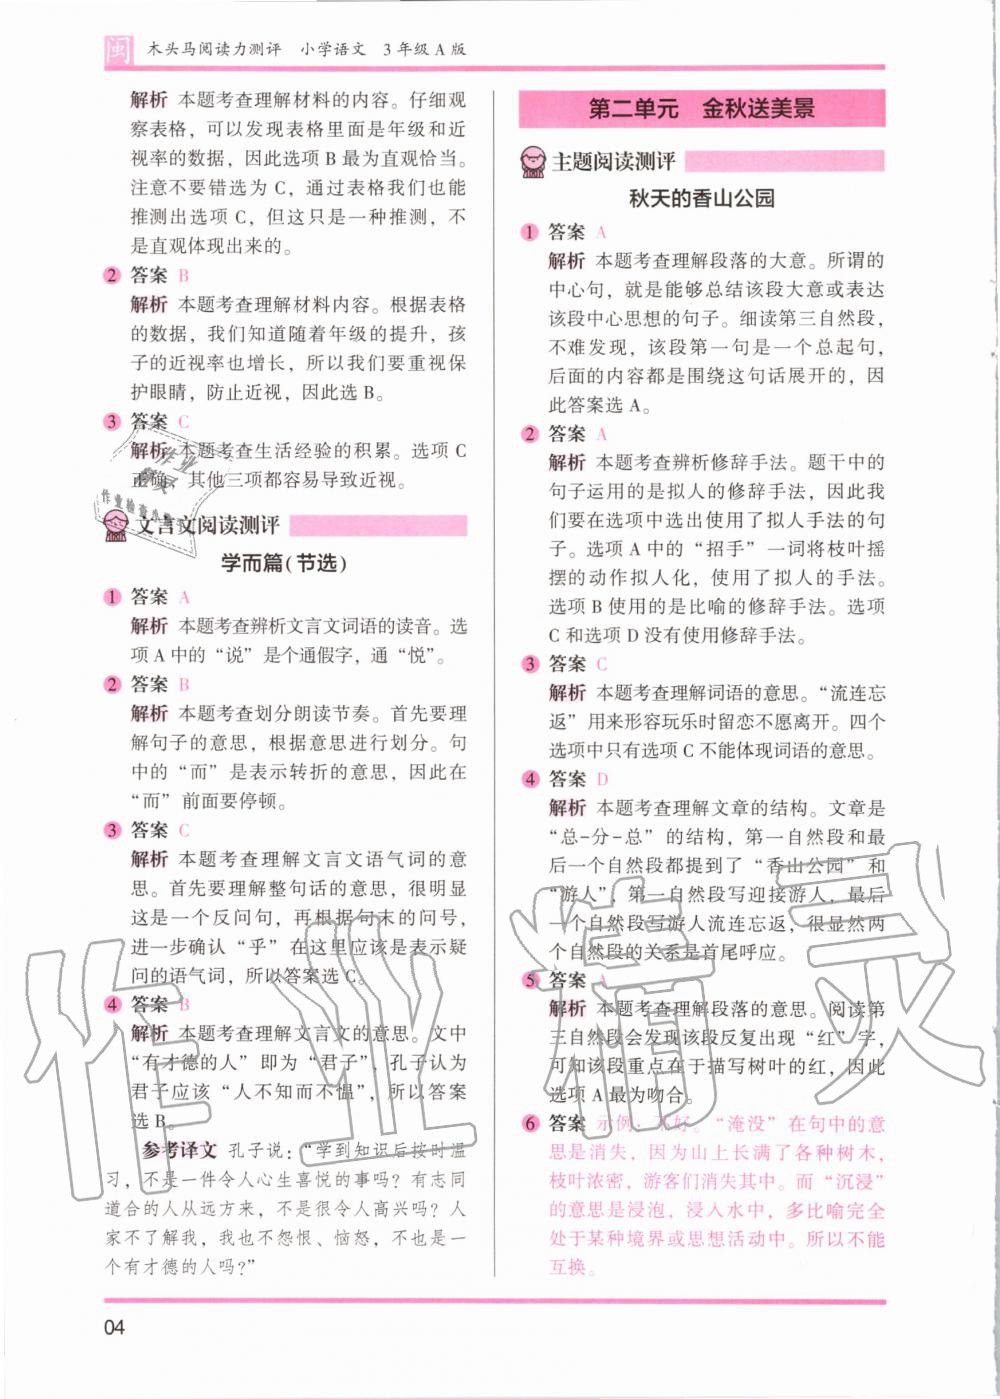 闽 木头马阅读力测评 小学语文 3 年级 A 版
解析 本题考查理解材料的内容。仔细观
察表格，可以发现表格里面是年级和近
视率的数据，因此选项 B 最为直观恰当。
注意不要错选为 C，通过表格我们也能
推测出选项 C，但这只是一种推测，不
是直观体现出来的。
2 答案 B
解析 本题考查理解材料内容。根据表格
的数据，我们知道随着年级的提升，孩
子的近视率也增长，所以我们要重视保
护眼睛，防止近视，因此选 B。
3 答案 C
解析 本题考查生活经验的积累。选项 C
正确，其他三项都容易导致近视。
文言文阅读测评
学而篇(节选)
1 答案 A
解析 本题考查辨析文言文词语的读音。选
项 A 中的“说”是个通假字，通“悦”。
2 答案 B
解析 本题考查划分朗读节奏。首先要理
解句子的意思，根据意思进行划分。句
中的“而”是表示转折的意思，因此在
“而”前面要停顿。
3 答案 C
解析 本题考查理解文言文语气词的意
思。首先要理解整句话的意思，很明显
这是一个反问句，再根据句末的问号，
进一步确认“乎”在这里应该是表示疑
问的语气词，所以答案选 C。
4 答案 B
解析 本题考查理解文言文的意思。文中
“有才德的人”即为“君子”，孔子认为
君子应该“人不知而不愠”，所以答案
选 B。
参考译文 孔子说：“学到知识后按时温
习，不是一件令人心生喜悦的事吗？有志同
道合的人从远方来，不是很令人高兴吗？人
家不了解我，我也不怨恨、恼怒，不也是一
个有才德的人吗？”
第二单元 金秋送美景
主题阅读测评
秋天的香山公园
1 答案 A
解析 本题考查理解段落的大意。所谓的
中心句，就是能够总结该段大意或表达
该段中心思想的句子。细读第三自然段，
不难发现，该段第一句是一个总起句，
后面的内容都是围绕这句话展开的，因
此答案选 A。
2 答案 A
解析 本题考查辨析修辞手法。题干中的
句子运用的是拟人的修辞手法，因此我
们要在选项中选出使用了拟人手法的句
子。选项 A 中的“招手”一词将枝叶摇
摆的动作拟人化，使用了拟人的手法。
选项 B 使用的是比喻的修辞手法。选项
C 和选项 D 没有使用修辞手法。
3 答案 C
解析 本题考查理解词语的意思。“流连忘
返”用来形容玩乐时留恋不愿离开。四个
选项中只有选项 C 不能体现词语的意思。
4 答案 D
解析 本题考查理解文章的结构。文章是
“总-分-总”的结构，第一自然段和最
后一个自然段都提到了“香山公园”和
“游人”，第一自然段写迎接游人，最后
一个自然段写游人流连忘返，很显然两
个自然段的关系是首尾呼应。
5 答案 A
解析 本题考查理解段落的意思。阅读第
三自然段会发现该段反复出现“红”字，
可知该段重点在于描写树叶的红，因此
选项 A 最为吻合。
6 答案 示例：不好。“淹没”在句中的意
思是消失，因为山上长满了各种树木，
枝叶浓密，游客们消失其中。而“沉浸”
的意思是浸泡，浸入水中，多比喻完全
处于某种境界或思想活动中。所以不能
互换。
04
作业精灵